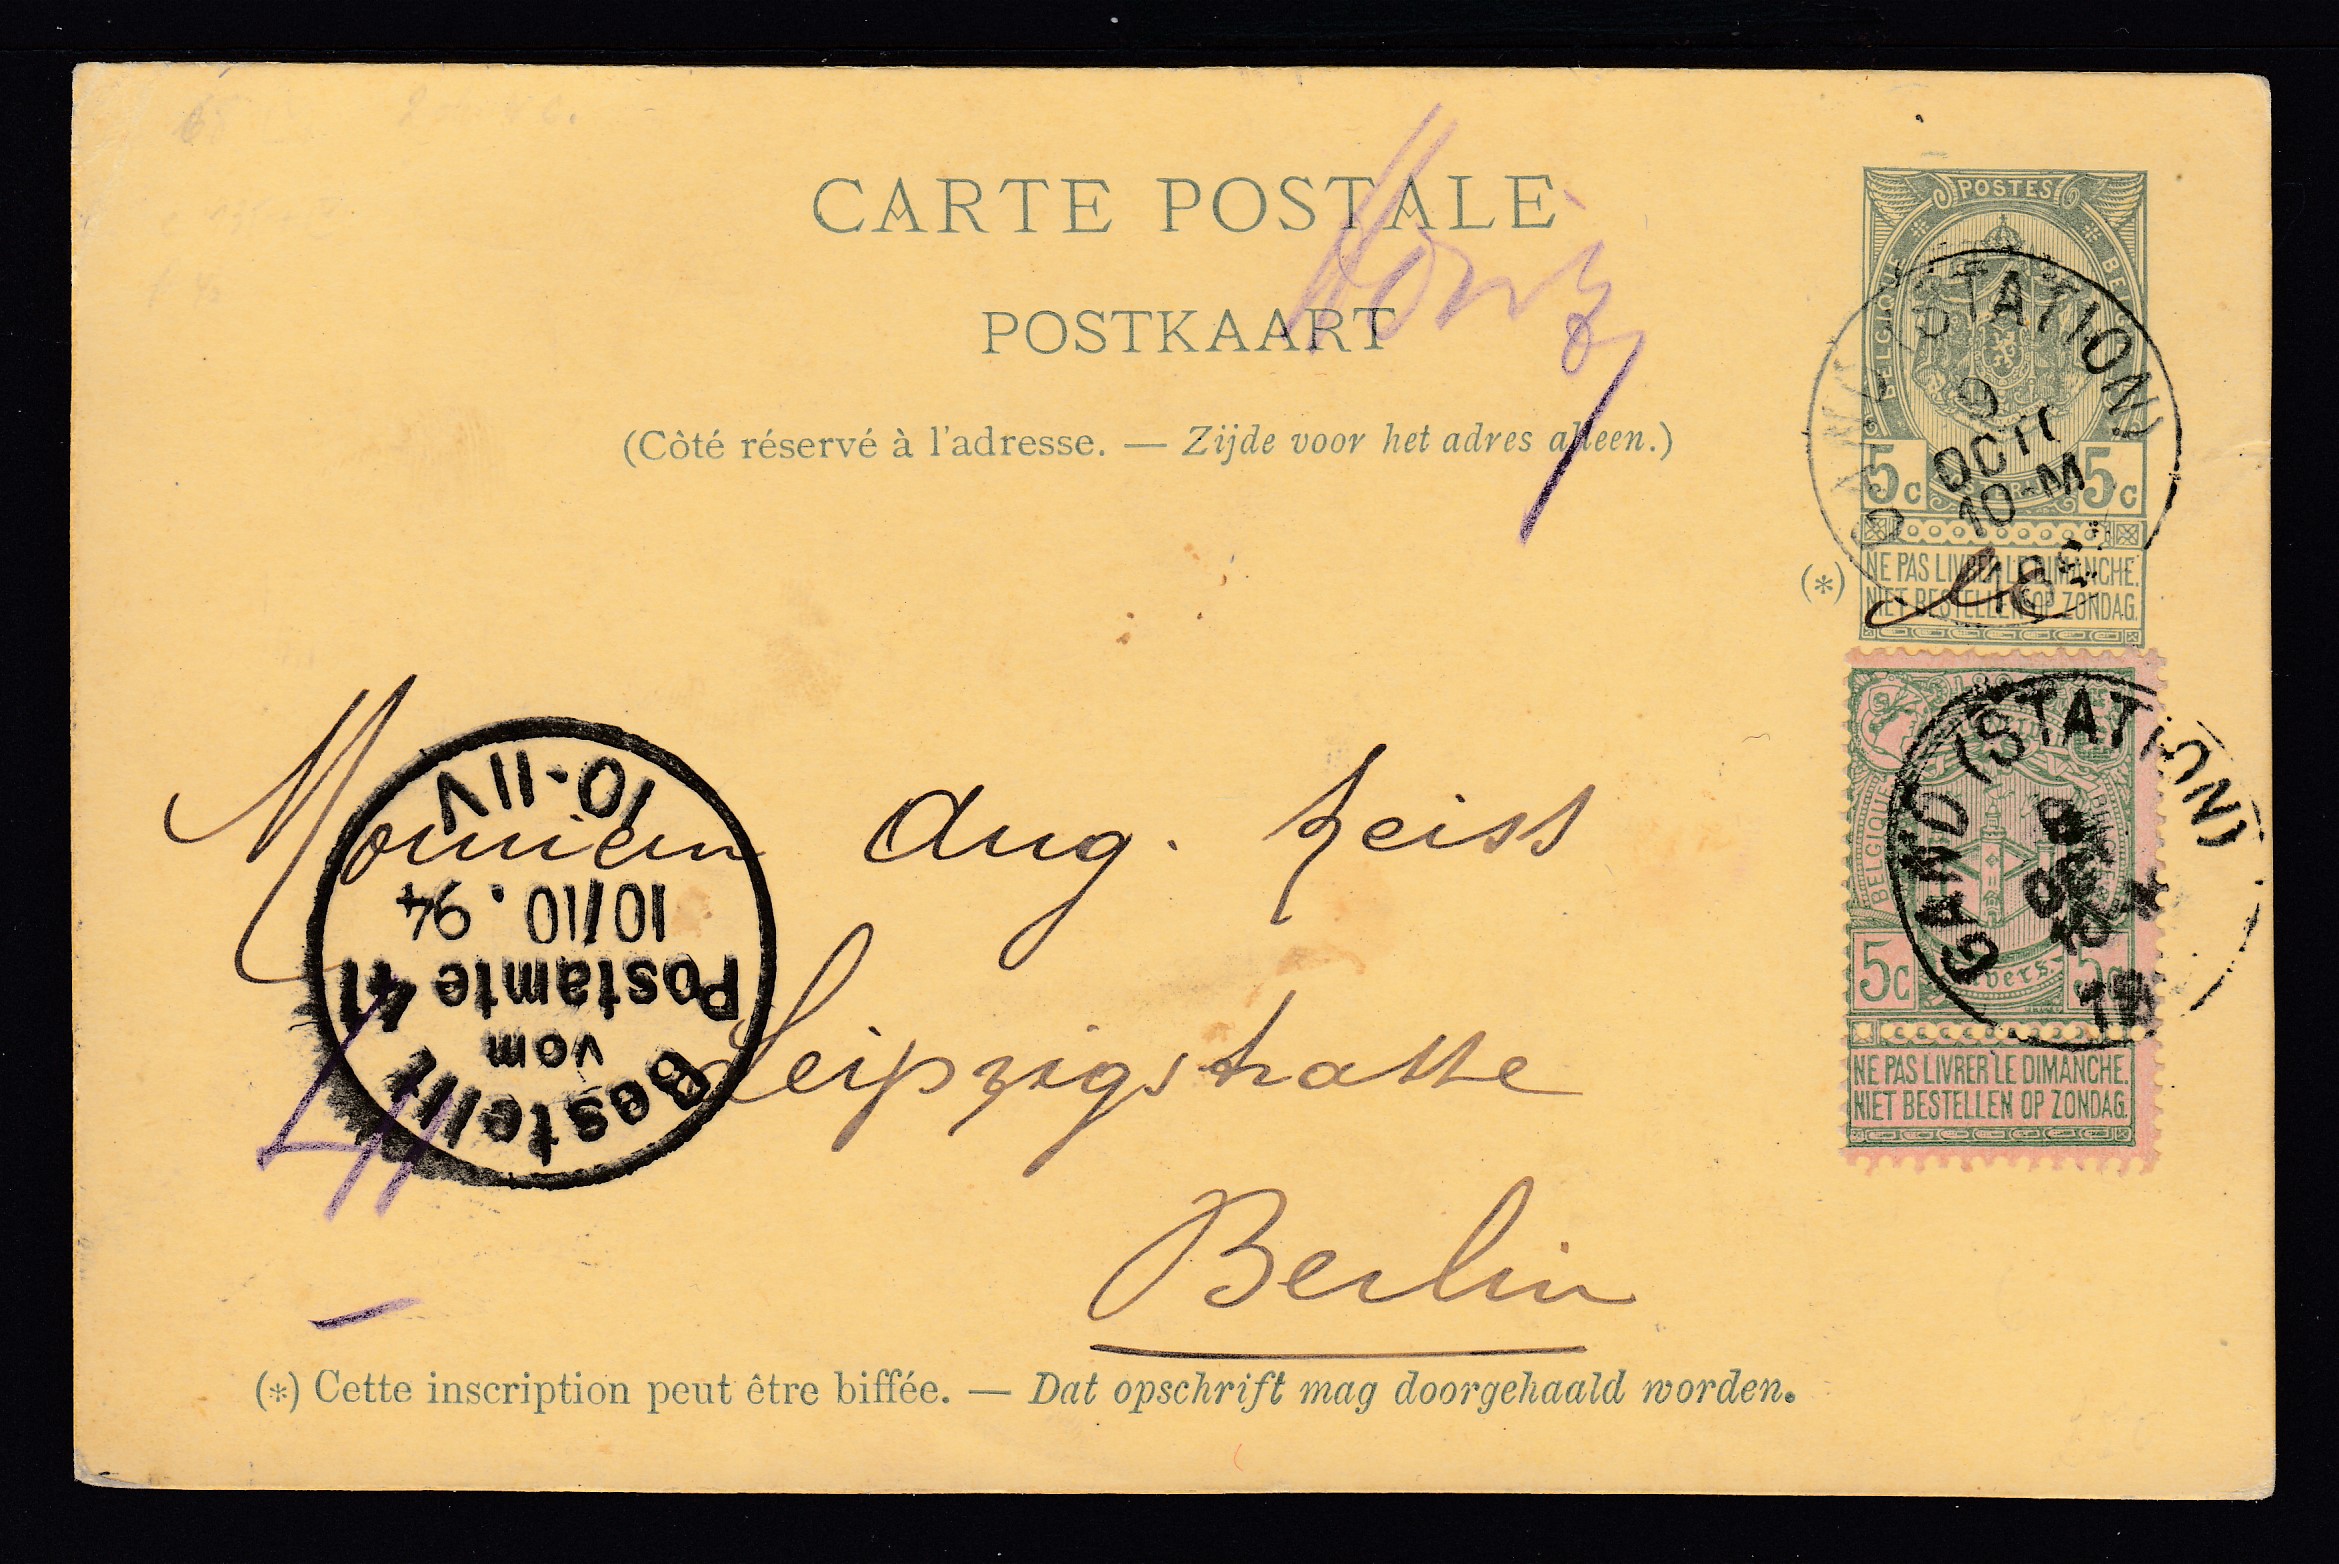 CARTE POSTALE
POSTKAART
(Côté réservé à l'adresse. — Zijde voor het adres alleen.)
POSTES
BELGIQUE
5c 5c
(*)
NE PAS LIVRER LE DIMANCHE.
NIET BESTELLEN OP ZONDAG.
GAND (STATION)
9
OCT
10-M
Monsieur Aug. Zeiss
Leipzigstrasse
Berlin
Bestellt
vom
Postamte 41
10/10. 94
10-11V
41
BELGIQUE
5c 5c
Anvers.
NE PAS LIVRER LE DIMANCHE.
NIET BESTELLEN OP ZONDAG.
GAND (STATION)
(*) Cette inscription peut être biffée. — Dat opschrift mag doorgehaald worden.